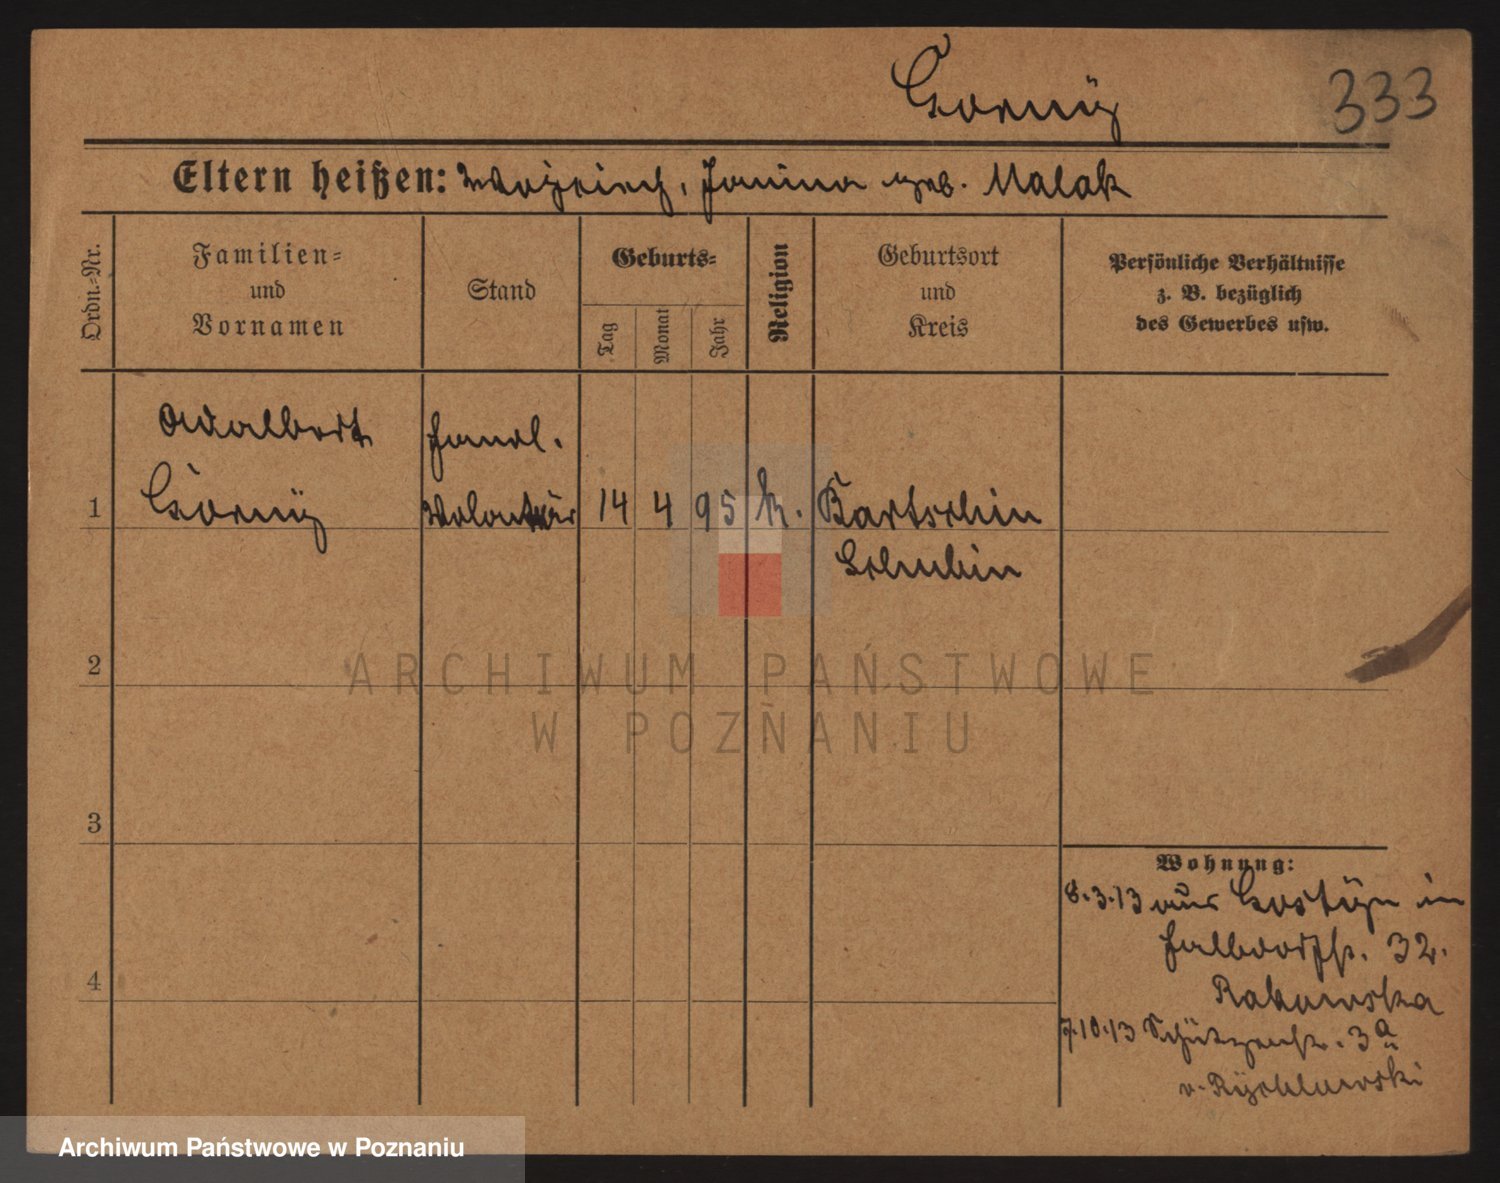 Gorny
333
Eltern heißen: Woyciech, Janina geb. Malak
Ordn.-Nr.
Familien-
und
Vornamen
Stand
Geburts-
Tag
Monat
Jahr
Religion
Geburtsort
und
Kreis
Persönliche Verhältnisse
z. B. bezüglich
des Gewerbes usw.
Adalbert
Handl.
1
Gorny
Volontär
14
4
95
k.
Bartschin
Schubin
2
ARCHIWUM PAŃSTWOWE
W POZNANIU
3
Wohnung:
8.3.13 aus Gostyn in
Halbdorfstr. 32.
4
Rakowska
7.10.13 Schützenstr. 3a
v. Rychlowski
Archiwum Państwowe w Poznaniu